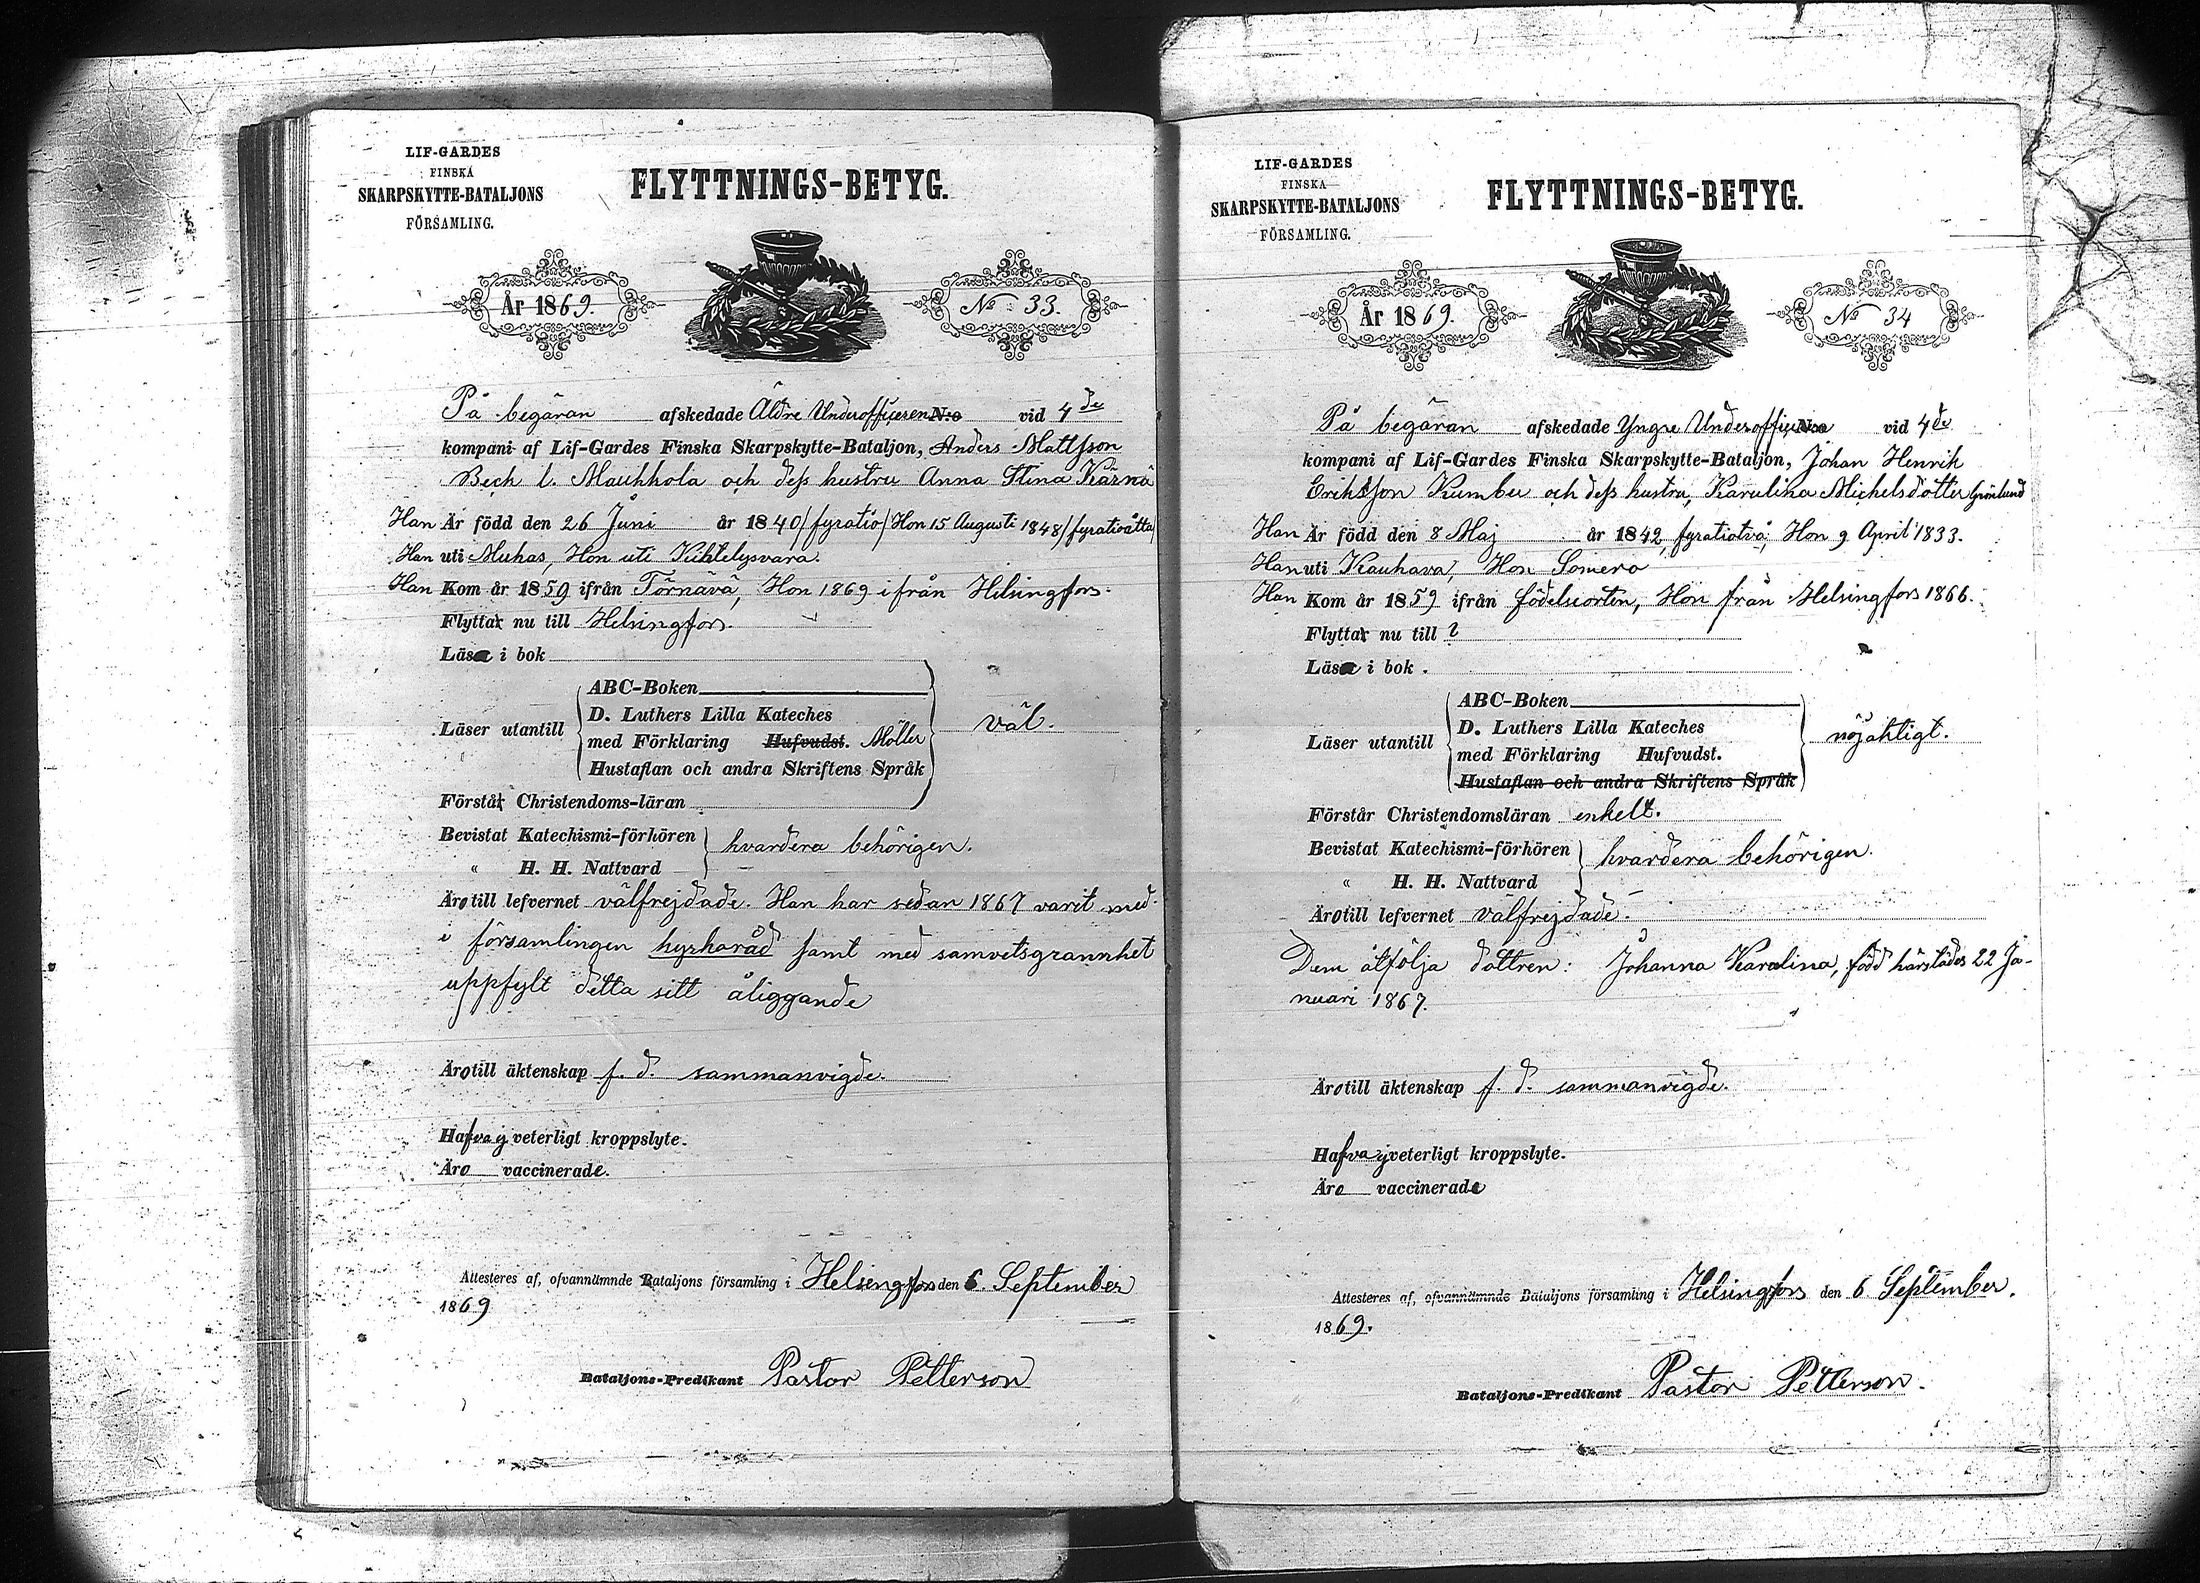 LIF-GARDES
FINSKA
SKARPSKYTTE-BATALJONS
FÖRSAMLING.
FLYTTNINGS-BETYG.
År 1869.
No 33.
På begäran afskedade Äldre Underofficeren N:o vid 4de
kompani af Lif-Gardes Finska Skarpskytte-Bataljon, Anders Mattsson
Bech l. Mauhhola och dess hustru Anna Stina Kärnä
Han Är född den 26 Juni år 1840/fyratio/Hon 15 Augusti 1848/fyratioåtta/
Han uti Muhas, Hon uti Kiihtelysvara.
Han Kom år 1859 ifrån Törnävä, Hon 1869 ifrån Helsingfors.
Flytta nu till Helsingfors.
Läsa i bok
ABC-Boken
D. Luthers Lilla Kateches
Läser utantill
med Förklaring Hufvudst. Möller
väl.
Hustaflan och andra Skriftens Språk
Förstå Christendoms-läran
Bevistat Katechismi-förhören
hvardera behörigen.
" H. H. Nattvard
Äro till lefvernet välfrejdade. Han har sedan 1867 varit med
i församlingen kyrkoråd samt med samvetsgrannhet
uppfylt detta sitt åliggande
Äro till äktenskap f. d. sammanvigde.
Hafva ej veterligt kroppslyte.
Äro vaccinerade.
Attesteres af, ofvannämnde Bataljons församling i Helsingfors den 6. September
1869
Bataljons-Predikant Pastor Petterson
LIF-GARDES
FINSKA
SKARPSKYTTE-BATALJONS
FÖRSAMLING.
FLYTTNINGS-BETYG.
År 1869.
No 34
På begäran afskedade Yngre Underofficeren N:o vid 4de
kompani af Lif-Gardes Finska Skarpskytte-Bataljon, Johan Henrik
Eriksson Kumbu och dess hustru, Karolina Michelsdotter Grönlund
Han Är född den 8 Maj år 1842, fyratiotvå, Hon 9 April 1833.
Han uti Kauhava, Hon Somero
Han Kom år 1859 ifrån födelseorten, Hon från Helsingfors 1866.
Flytta nu till ?
Läsa i bok.
ABC-Boken
D. Luthers Lilla Kateches
Läser utantill
med Förklaring Hufvudst.
nöjaktigt.
Hustaflan och andra Skriftens Språk
Förstår Christendomsläran enkelt.
Bevistat Katechismi-förhören
hvardera behörigen.
" H. H. Nattvard
Äro till lefvernet välfrejdade.
Dem åtfölja dottren: Johanna Karolina, född härstädes 22 Ja-
nuari 1867.
Äro till äktenskap f. d. sammanvigde.
Hafva ej veterligt kroppslyte.
Äro vaccinerade
Attesteres af, ofvannämnde Bataljons församling i Helsingfors den 6 September.
1869.
Bataljons-Predikant Pastor Petterson.